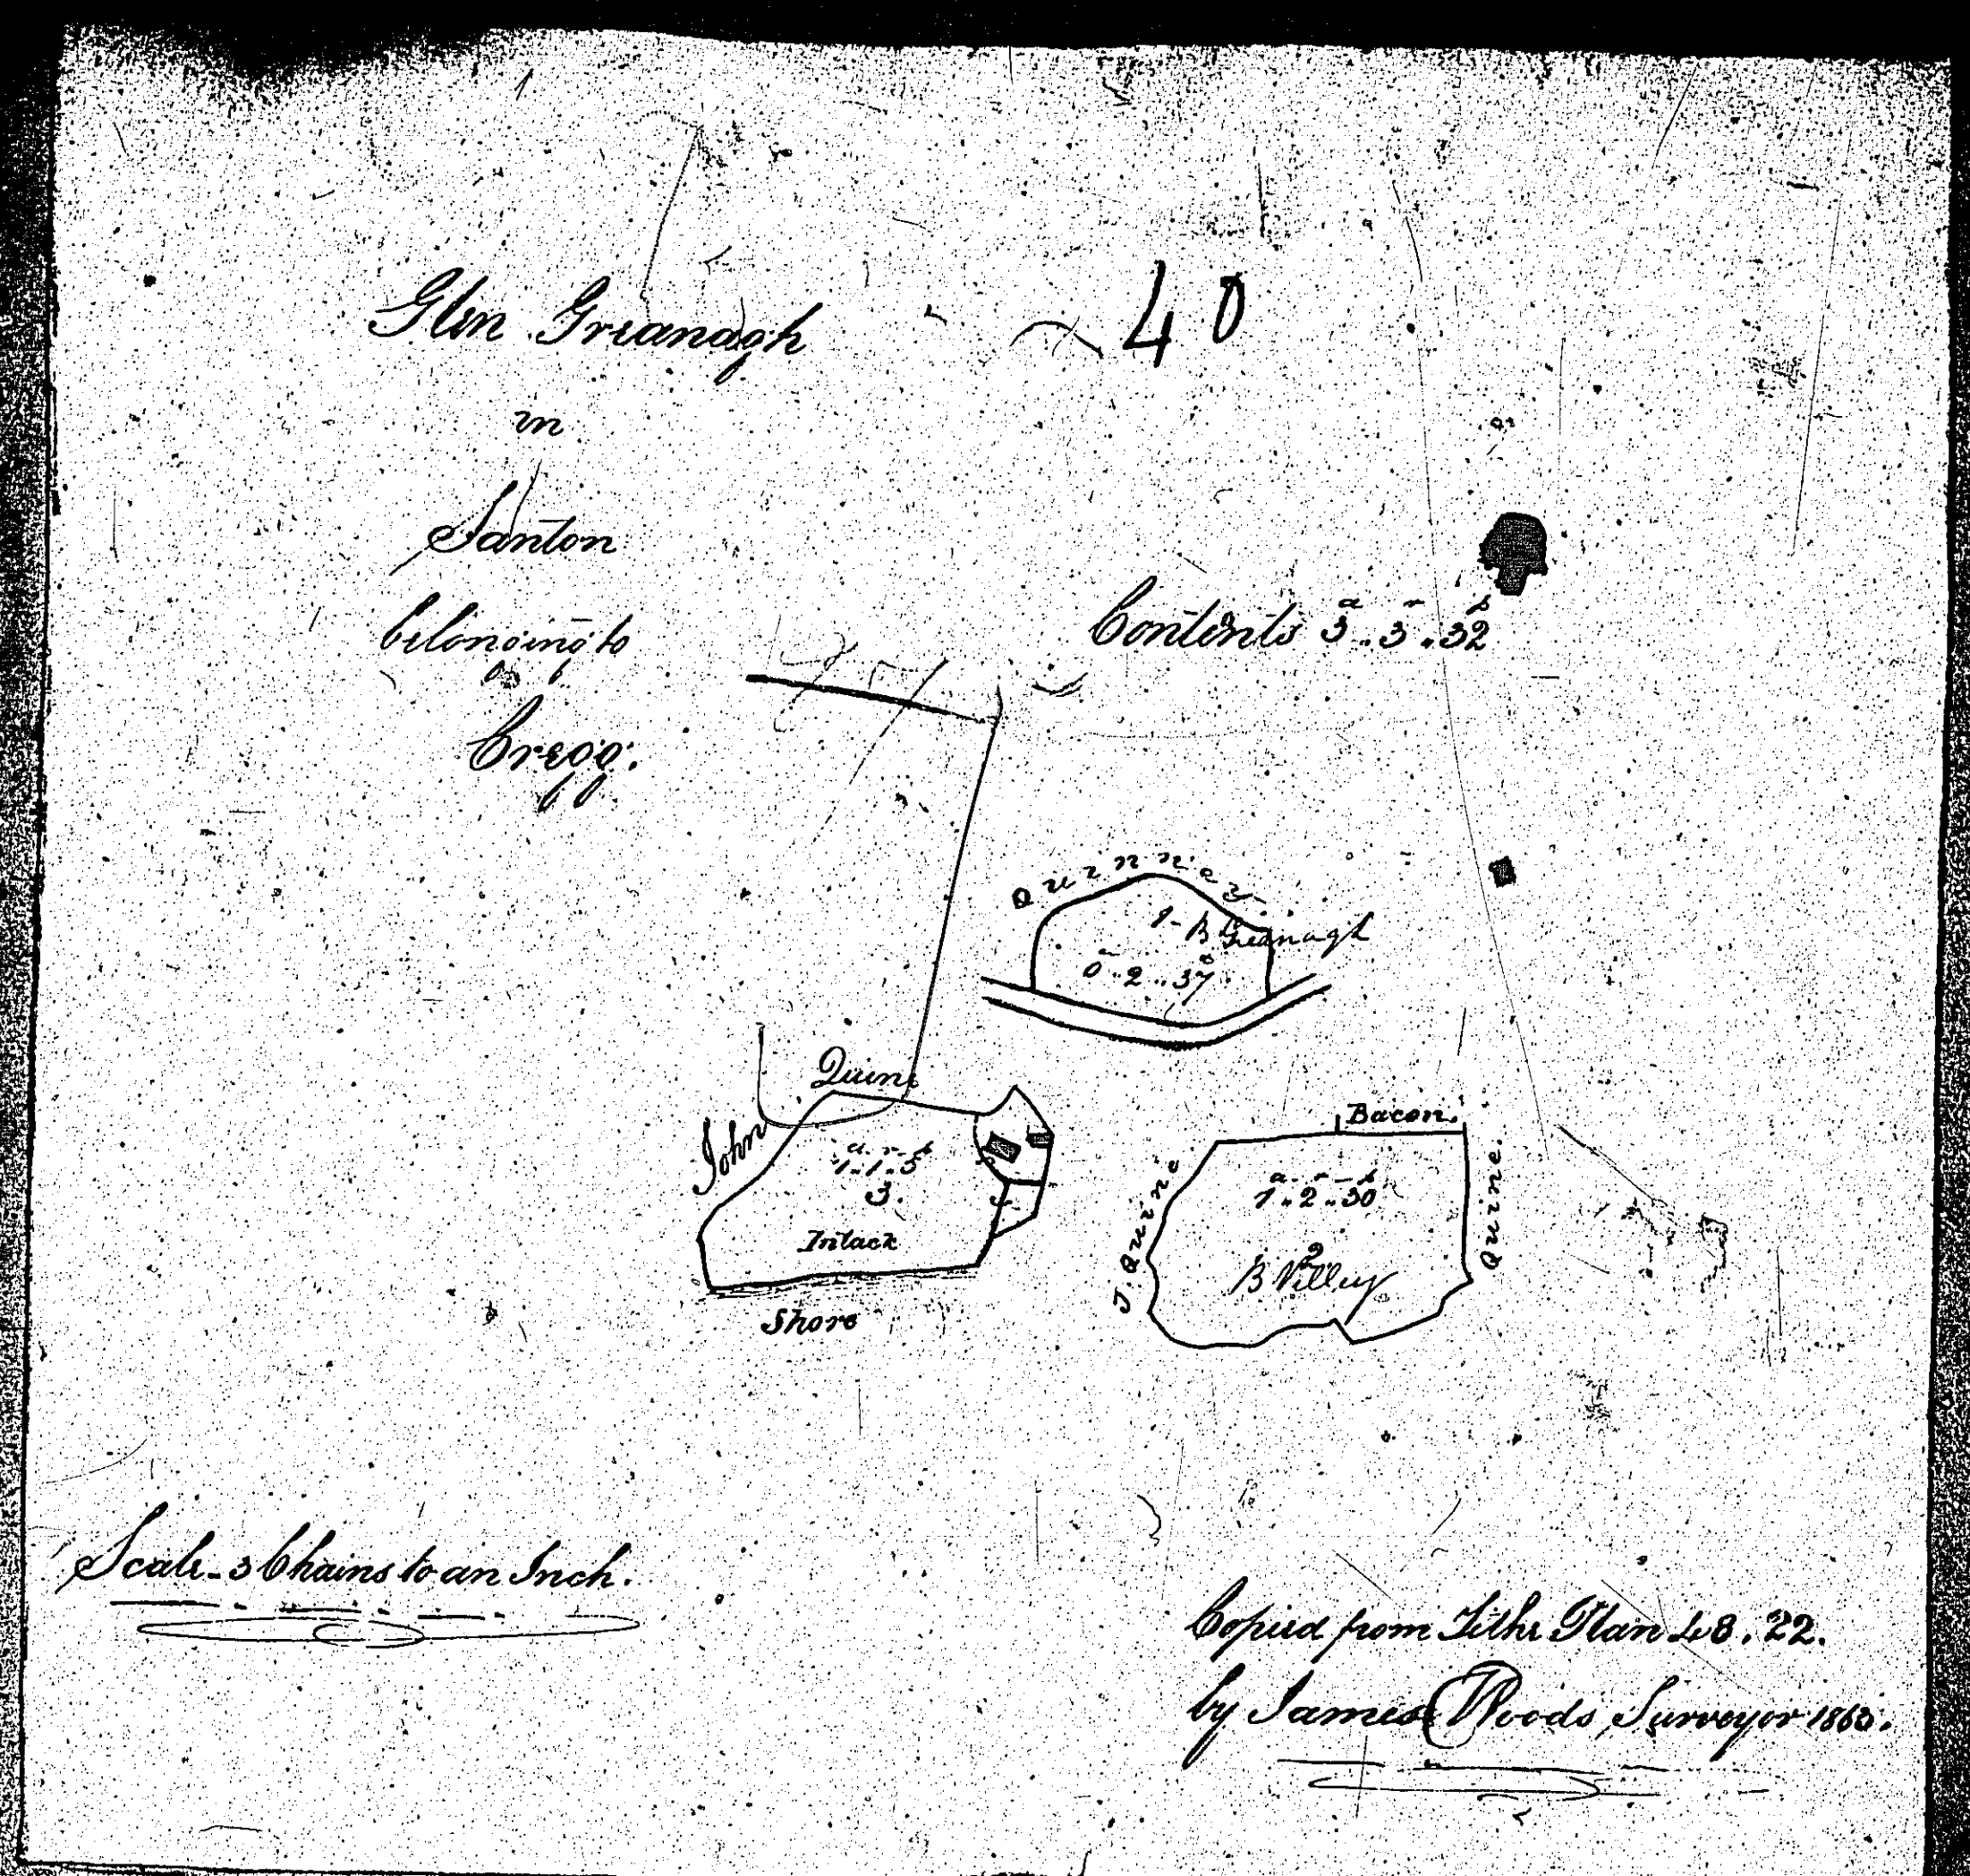 Glen Greanagh
40
in
Santon
belonging to
Cregg.
a r p
Contents 3..3..32
Quinney
1 - B Greanagh
0..2..37
Quine
John
a. r. p
1..1..5
3.
Intack
Shore
Bacon.
J. Quine
a. r - p
1..2..30
2
B Villey
Quine.
Scale - 3 Chains to an Inch.
Copied from Tithe Plan 48.22.
by James Woods Surveyor